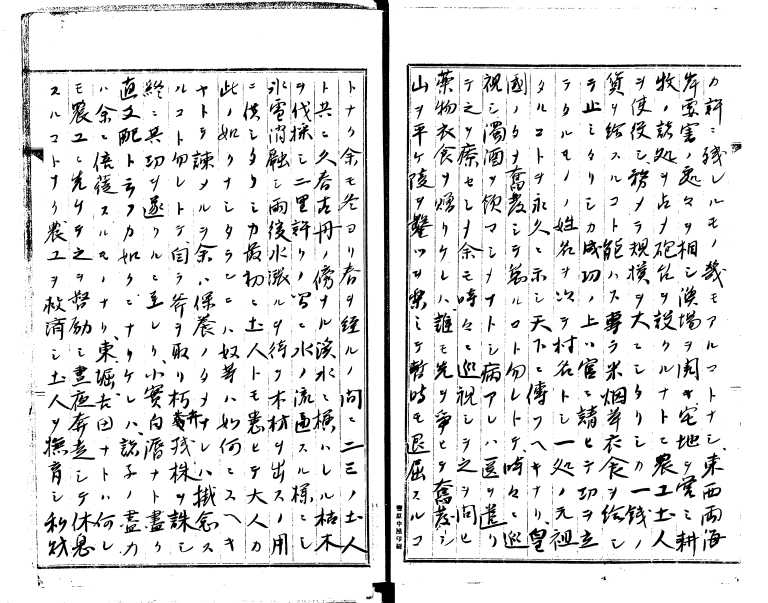 カ許ニ残レルモノ幾モアルコトナシ東西両海
岸要害ノ処々ヲ相シ漁場ヲ開キ宅地ヲ定ミ耕
牧ノ諸処ヲ占メ砲台ヲ設クルナトニ農工土人
ヲ使役シ務メテ規模ヲ大ニシタリシカ一銭ノ
貨ヲ給スルコト能ハス専ラ米烟草衣食ヲ給シ
テ止ミタリシカ成功ノ上ハ官ニ請ヒテ功ヲ立
テタルモノノ姓名ヲ次テ村名トシ一処ノ元祖
タルコトヲ永久ニ示シ天下ニ傳フヘキナリ皇
國ノタメ奮発シテ怠ルコト勿レトテ時々ニ巡
視シ濁酒ヲ飲マシメナトシ病アレハ医ヲ遣リ
テ之ヲ療セシメ余モ時々ニ巡視シテ之ヲ問ヒ
薬物衣食ヲ贈リケレハ誰モ先ヲ争ヒテ奮発シ
山ヲ平ケ陵ヲ鑿ツヲ楽ミテ暫時モ退屈スルコ
トナク余モ冬ヨリ春ヲ経ルノ間ニ二三ノ土人
ト共ニ久春古丹ノ傍ナル渓水ニ横ハレル枯木
ヲ伐採シ二里許リノ写ニ水ノ流通スル様ニシ
氷雪消融シ雨後水漲ルヲ待ツ木材ヲ出スノ用
ニ供シタリシカ最初ニ土人トモ患ヒテ大人カ
此ノ如クナシタランニハ奴等ハ如何ニスヘキ
ヤトテ諫メルヲ余ハ保養ノタメナレハ掛念ス
ルコト勿レトテ自ラ斧ヲ取リ朽木残株ヲ誅シ
終ニ其功ヲ遂ルニ至レリ小實内潜ナト盡ク
直支配ト云フカ如クニナリケレハ諸子ノ盡力
ハ余ニ倍蓰スルモノナリ東堀吉田ナトハ何レ
モ農工ニ先タチテ之ヲ督励シ晝夜奔走シテ休息
スルコトナク農工ヲ救済シ土人ヲ撫育シ私財